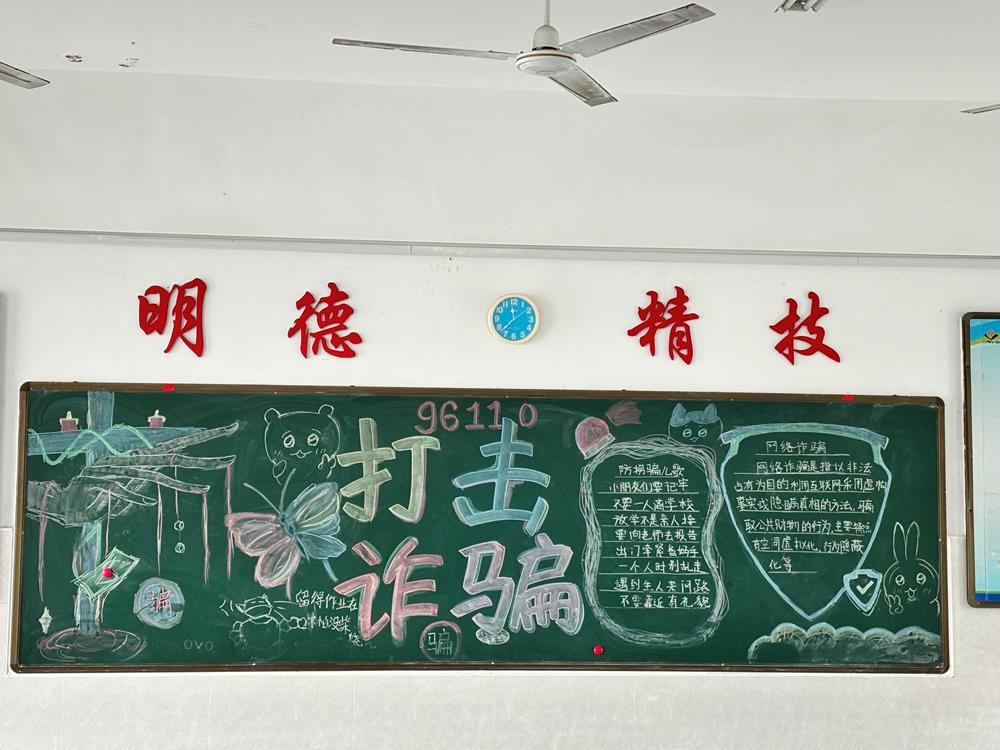 明德 精技
12
1
2
3
4
5
6
7
8
9
10
11
96110
打击
诈骗
骗
骗
留得作业在
没柴
烧
OVO
防拐骗儿歌
小朋友们要记牢
不要一人离学校
放学不是亲人接
要向老师去报告
出门牵紧爸妈手
一个人时别乱走
遇到生人来问路
不要靠近有礼貌
网络诈骗
网络诈骗是指以非法
占有为目的利用互联网采用虚构
事实或隐瞒真相的方法,骗
取公共财物的行为,主要特点
有空间虚拟化,行为隐蔽
化等